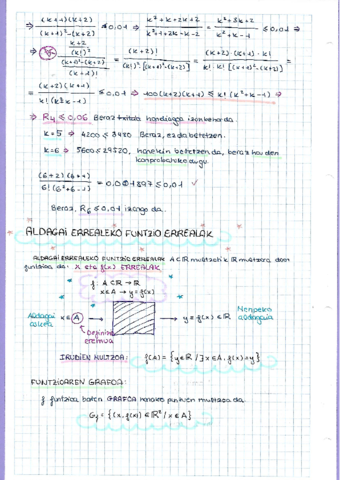 ⇒ (k+1)(k+2) / (k+1)²-(k+2) ≤ 0,01 ⇒ k²+k+2k+2 / k²+1+2k-k-2 = k²+3k+2 / k²+k-1 ≤ 0,01 ⇒
= (k+2)(k+1) / k!(k²+k-1) ≤ 0,01 ⇒ 100(k+2)(k+1) ≤ k!(k²+k-1) ⇒
⇒ R₄ ≤ 0,06 Beraz txikiago handiagoa izan behar da.
k=5 ⇒ 4200 ≤ 3480 Beraz, ez da betetzen.
k=6 ⇒ 5600 ≤ 29520, honekin betetzen da, beraz hau den
konprobatuko dugu.
(6+2)(6+1) / 6!(6²+6-1) = 0,001897 ≤ 0,01
Beraz, R₆ ≤ 0,01 izango da.
ALDAGAI ERREALEKO FUNTZIO ERREALAK
ALDAGAI ERREALEKO FUNTZIO ERREALAK A⊂ℝ multzotik ℝ multzora doan
funtzioa da: x eta f(x) ERREALAK
f: A⊂ℝ → ℝ
x∈A → y=f(x)
Aldagai askea x∈A → y=f(x)∈ℝ Menpeko aldagaia
Definizio
eremua
IRUDIEN MULTZOA: f(A) = {y∈ℝ / ∃x∈A, f(x)=y}
FUNTZIOAREN GRAFOA:
f funtzioa baten GRAFOA honako puntuen multzoa da
Gf = {(x, f(x))∈ℝ² / x∈A}